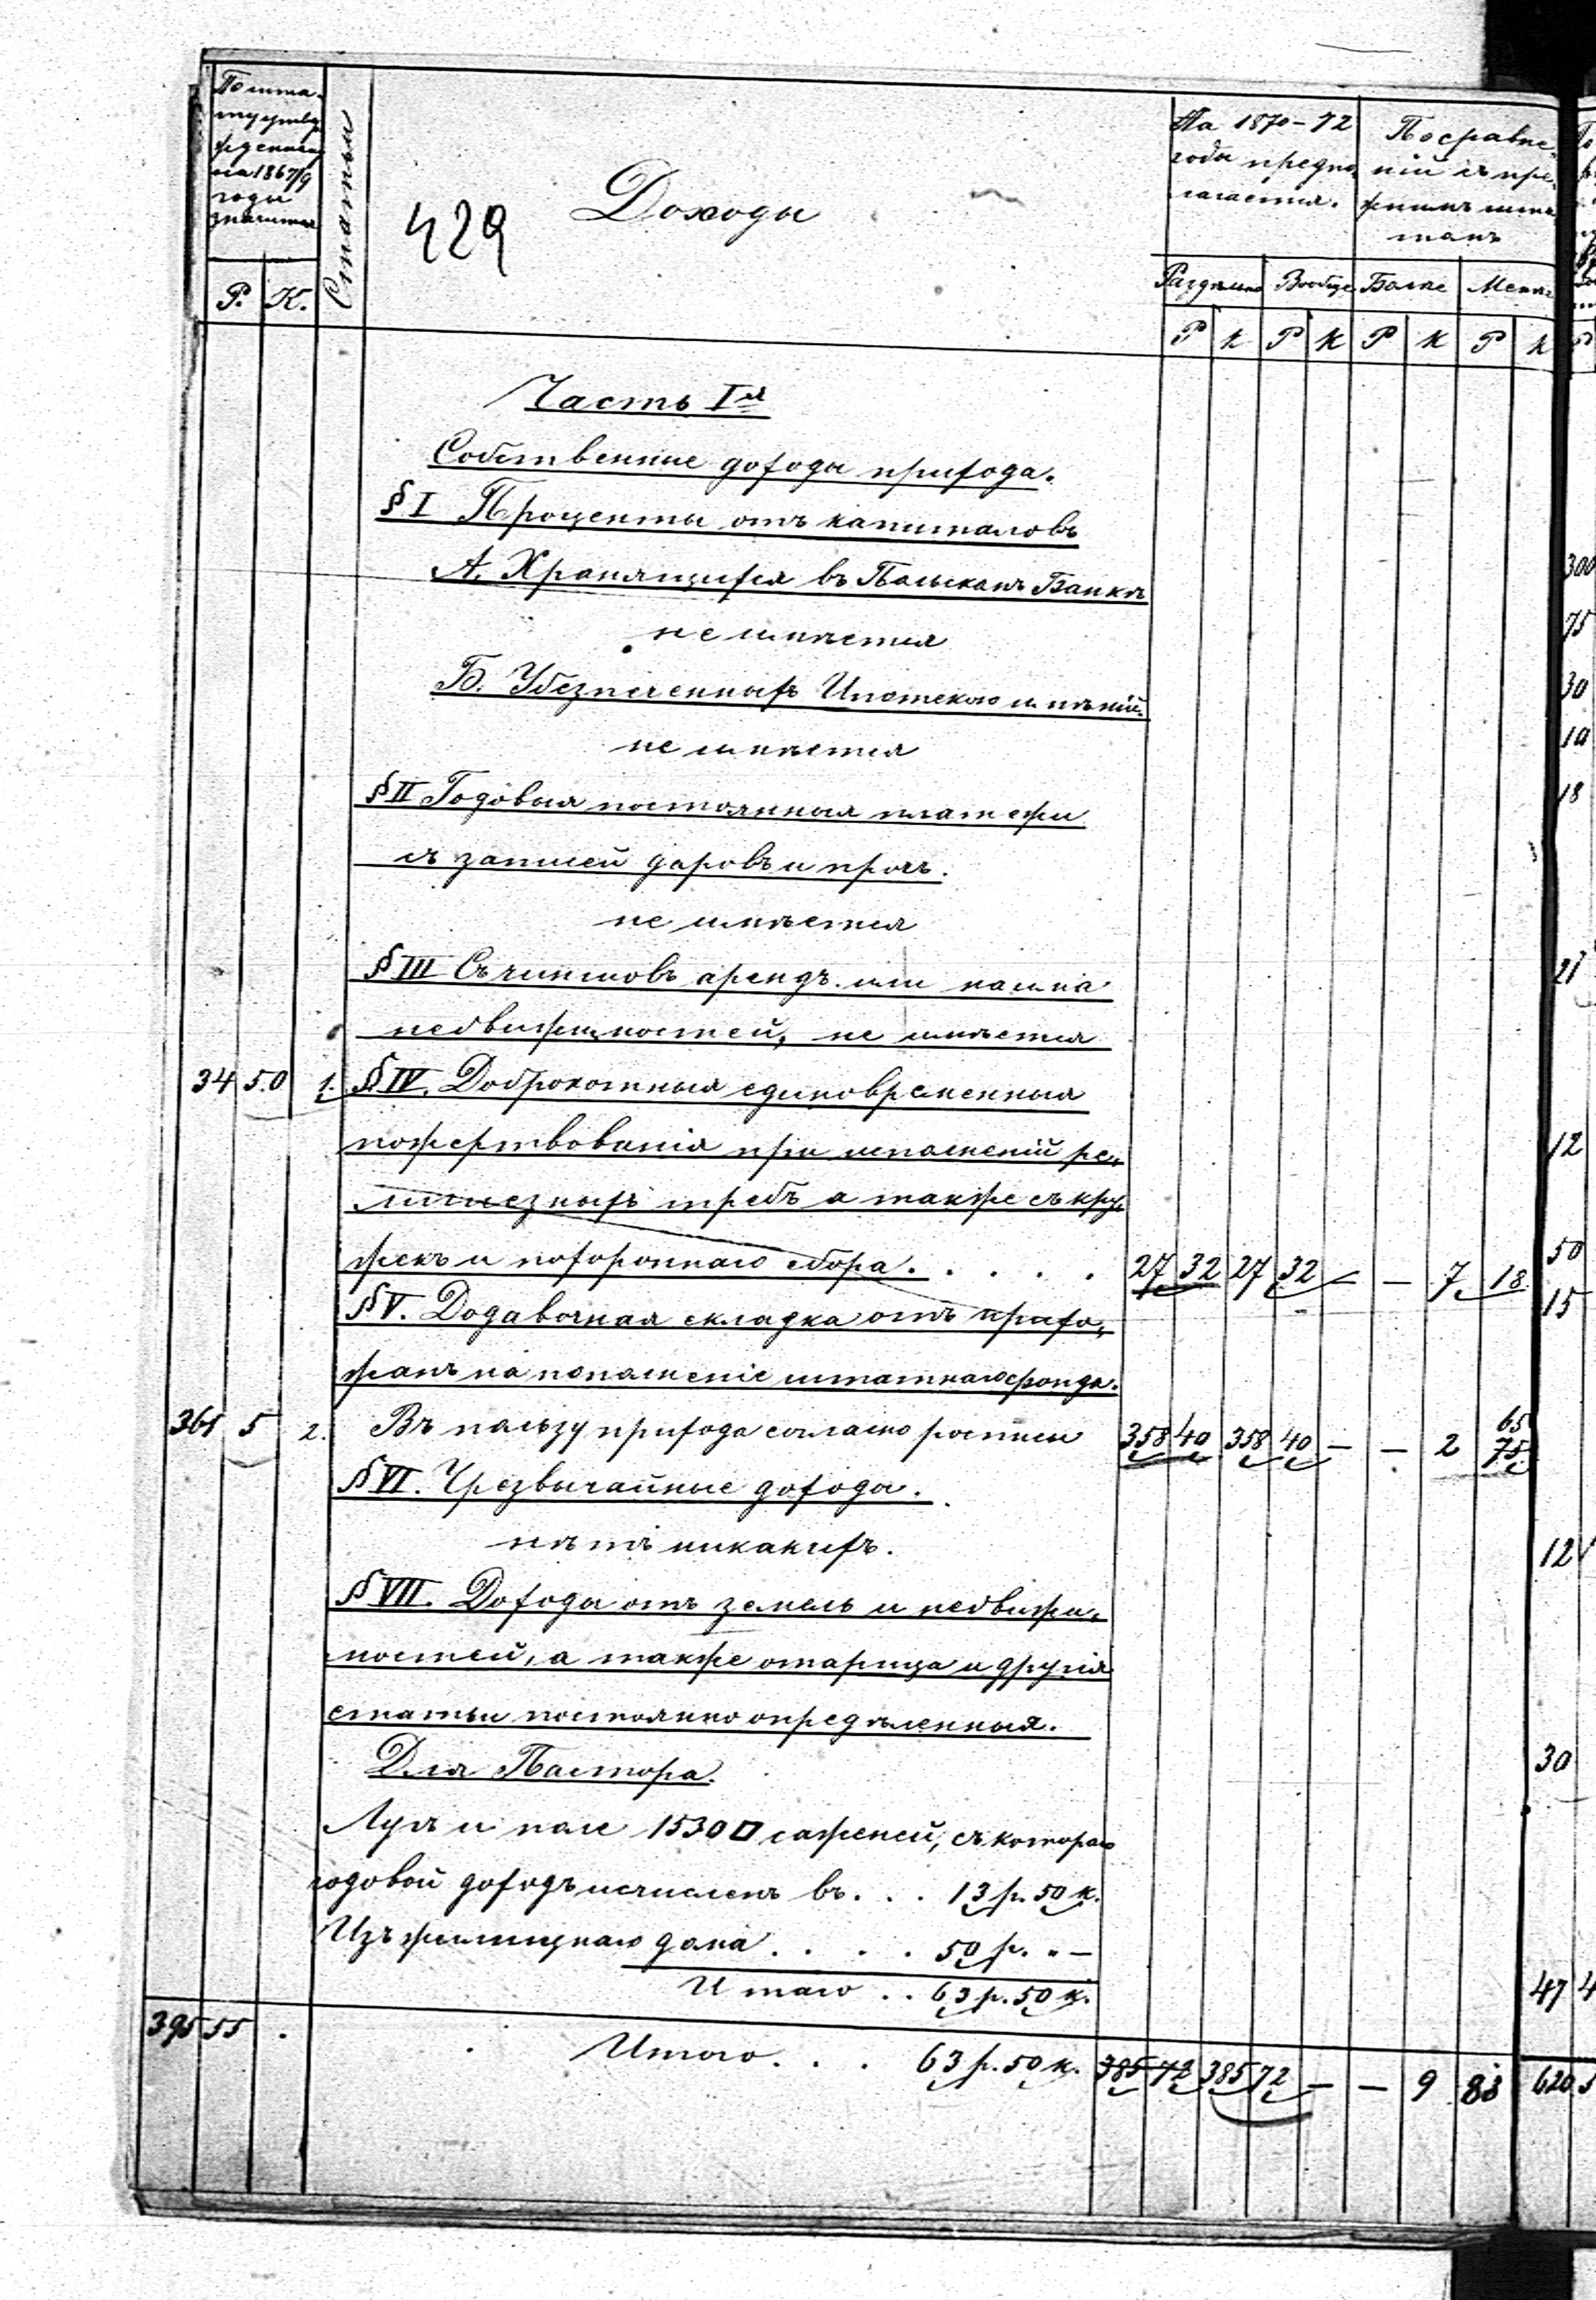 По шта-
ту утвер-
жденному
на 1867/9
годы
значится
Р. К.
Статьи
429
Доходы
На 1870-72
годы предпо-
лагается.
По сравне-
нiй съ пре-
жнимъ шта-
томъ
Раздѣльно Вообще Болѣе Менѣе
Р К Р К Р К Р К
Часть Iя
Собственные доходы прихода.
§ I Проценты отъ капиталовъ
А. Хранящихся въ Польскомъ Банкѣ
не имѣется
Б. Убезпеченныхъ Ипотекою имѣнiй
не имѣется
§ II Годовыя постоянныя платежи
съ записей даровъ и проч.
не имѣется
§ III Съ чиншовъ арендъ или найма
недвижимостей, не имѣется
34 50 1. § IV. Доброхотныя единовременныя
пожертвованiя при исполненiй ре-
лигiезныхъ требъ а также съ кру-
жекъ и похороннаго сбора. . . . . 27 32 27 32 — — 7 18
§ V. Додавочная складка отъ прихо-
жанъ на пополненiе штатнаго фонда.
361 5 2. Въ пользу прихода согласно росписи 358 40 358 40 — — 2 65 75
§ VI. Чрезвычайные доходы.
нѣтъ никакихъ.
§ VII. Доходы отъ земель и недвижи-
мостей, а также ­ординарiя и другiя
статьи постоянно опредѣленныя.
Для Пастора.
Лугъ и поле 1530 □ саженей, съ котораго
годовой доходъ исчисленъ въ . . . 13 р. 50 к.
Изъ жилищнаго дома . . . . 50 р. „ —
Итого . . 63 р. 50 к.
395 55 Итого . . . 63 р. 50 к. 385 72 385 72 — — 9 83
300
75
30
10
18
21
12
50
15
12
30
47 4
620 5